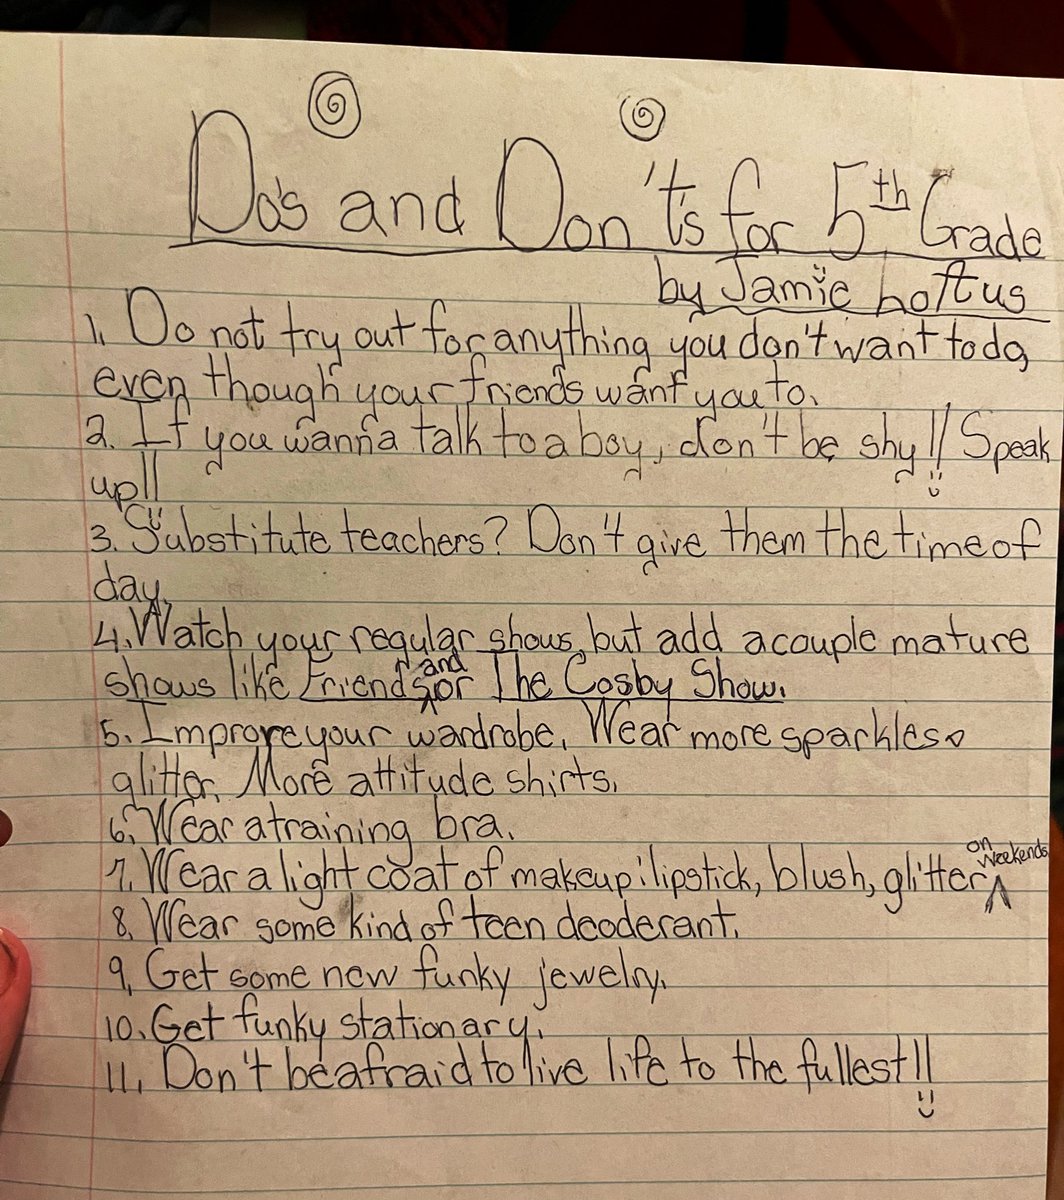 Do's and Don't's for 5th Grade
by Jamie Loftus
1. Do not try out for anything you don't want to do,
even though your friends want you to.
2. If you wanna talk to a boy, don't be shy!! Speak
up!!
3. Substitute teachers? Don't give them the time of
day.
4. Watch your regular shows, but add a couple mature
shows like Friends and or The Cosby Show.
5. Improve your wardrobe. Wear more sparkles &
glitter. More attitude shirts.
6. Wear a training bra.
7. Wear a light coat of makeup: lipstick, blush, glitter on weekends
8. Wear some kind of teen deoderant.
9. Get some new funky jewelry.
10. Get funky stationary.
11. Don't be afraid to live life to the fullest!!